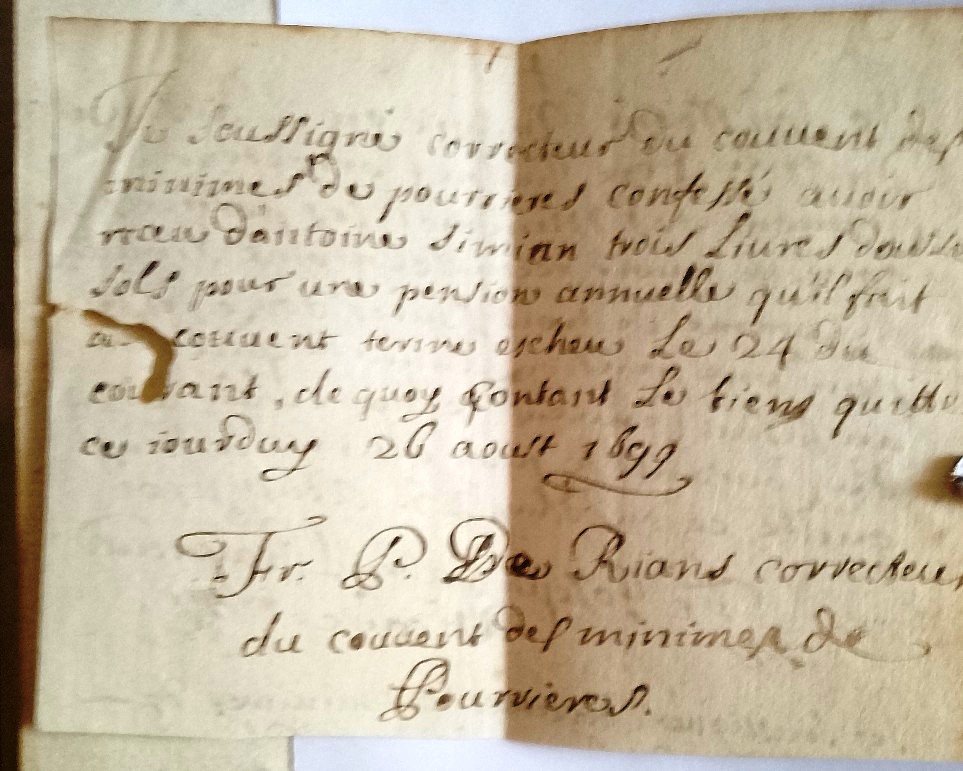 Je soussigné correcteur du couuent des
minimes de pourrieres confesse auoir
receu d'antoine Simian trois Liures douse
sols pour une pension annuelle qu'il fait
au couuent terme escheu Le 24 du
courant, de quoy Contant Le tiens quitte
ce iourduy 26 aoust 1699
Fr. P. De Rians correcteur
du couuent des minimes de
Pourrieres.